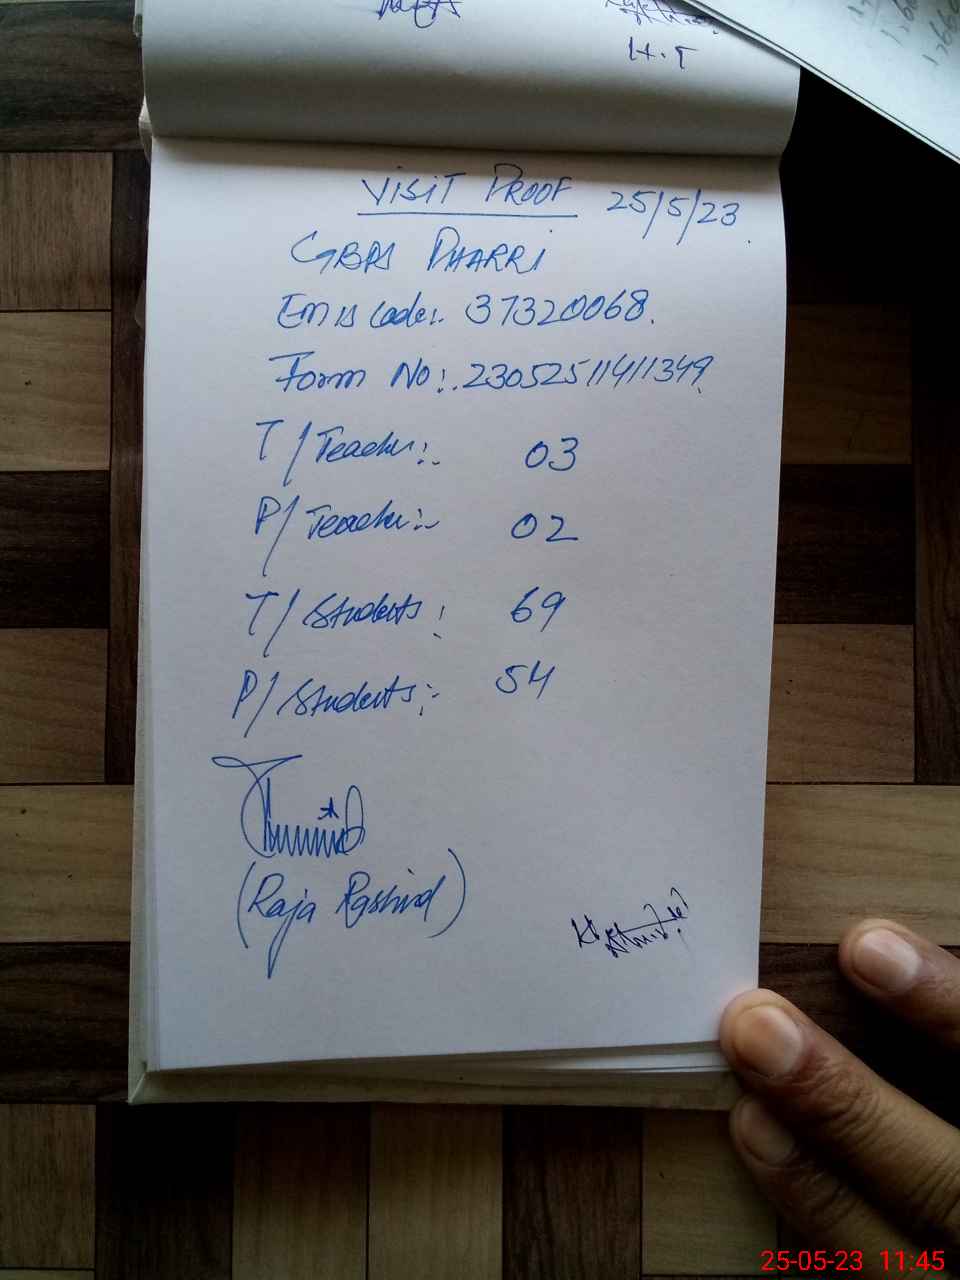 H.T
VISIT PROOF 25/5/23.
GBPS PHARRI
Emis Code:. 37320068.
Form No:. 23052511411349
T/Teacher:. 03
P/Teacher:- 02
T/Students: 69
P/Students:- 54
(Raja Rashid)
25-05-23 11:45